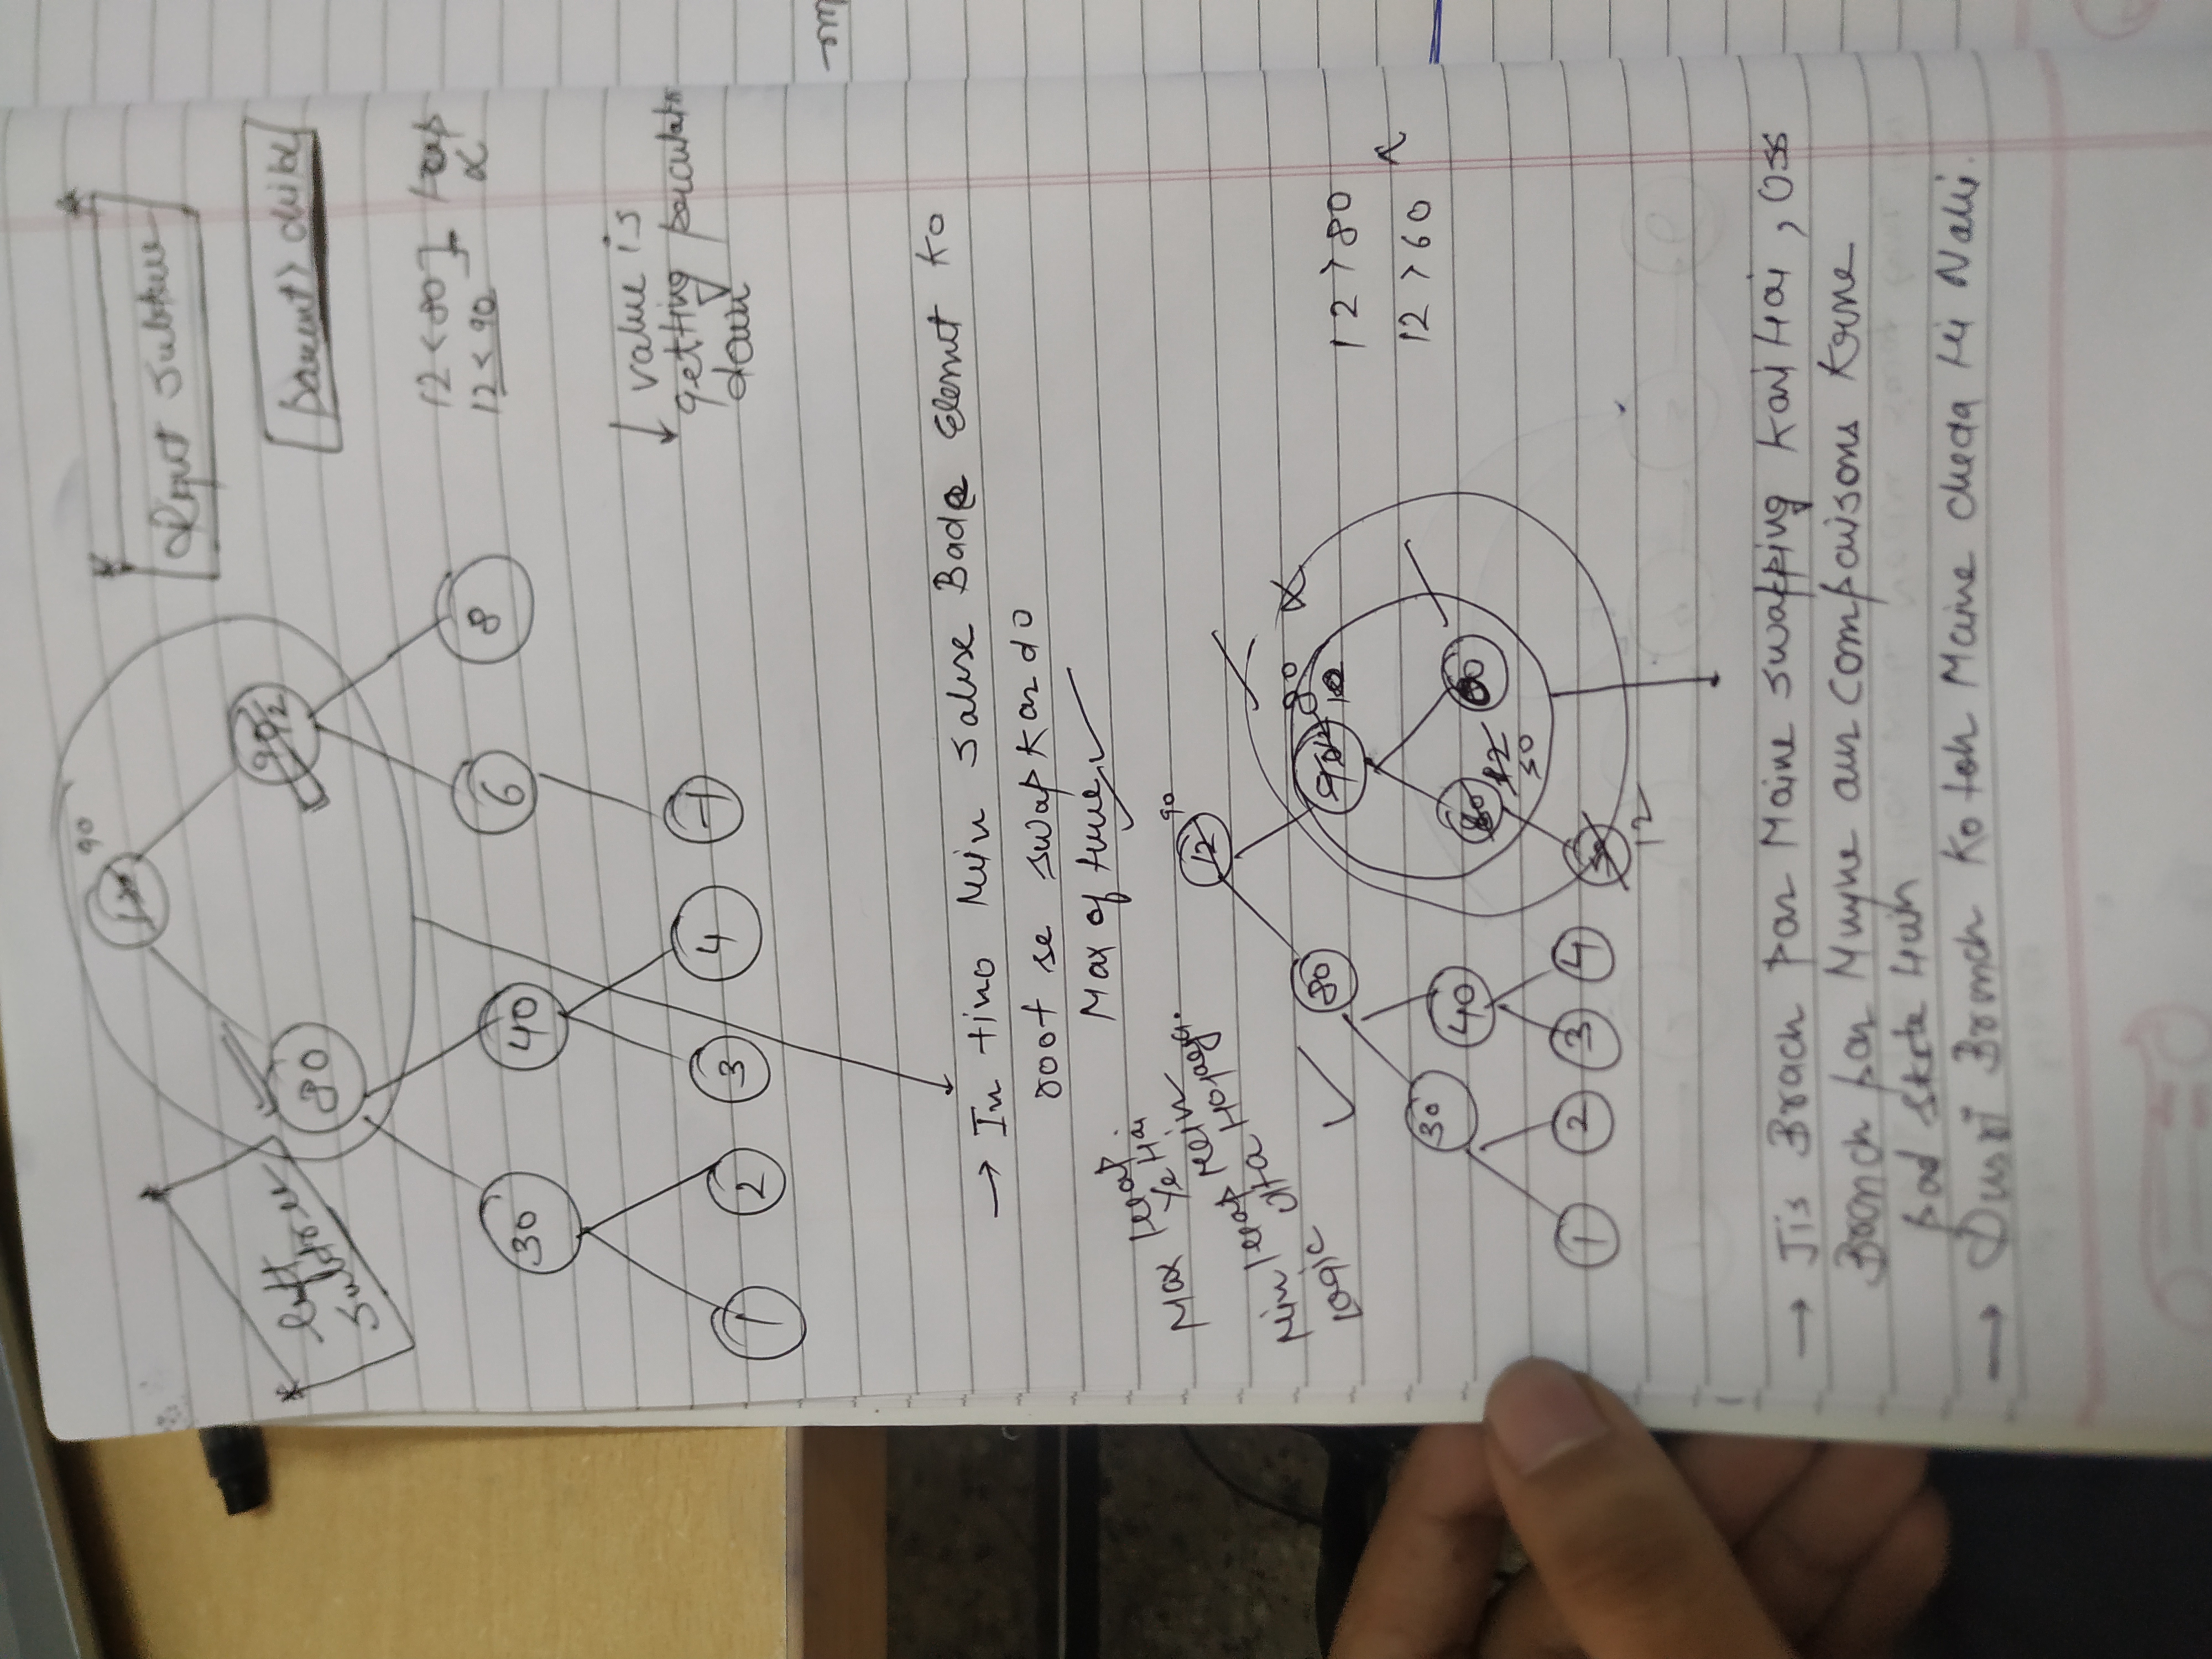 90
12
Right Subtree
left
Subtree
80
90 12
Parent > child
30
40
6
8
12 < 80 ] Heap
12 < 90 x
1
2
3
4
-1
↓ value is
getting perculate
down
→ In tino Mein Sabse Bade Element Ko
root se swap Kar do
Max of three ✓
Max Heap
Ye Hai
Min Heap Mein
Logic Ulta Hojaega.
12 90
80
90 12 80
30
40
80 12 50
60
12 > 80
12 > 60
1
2
3
4
50
12
→ Jis Brach par Maine swapping Kari Hai, Oss
Branch par Mujhe aur comparisons Krne
pad skte Hain
→ Dusri Branch Ko toh Maine cheda Hi Nahi.